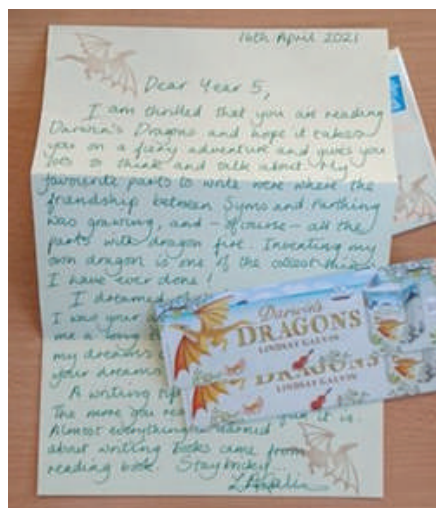 16th April 2021
Dear Year 5,
I am thrilled that you are reading
Darwin's Dragons and hope it takes
you on a fiery adventure and gives you
lots to think and talk about. My
favourite parts to write were where the
friendship between Syms and Farthing
was growing, and - of course - all the
parts with dragon fire. Inventing my
own dragon is one of the coolest things
I have ever done!
I dreamed
I was your
me a long
my dreams
your dreams
A writing tip
The more you read
Almost everything I learned
about writing books came from
reading books. Stay
Darwin's
DRAGONS
LINDSAY GALVIN
DRAGONS
LINDSAY GALVIN